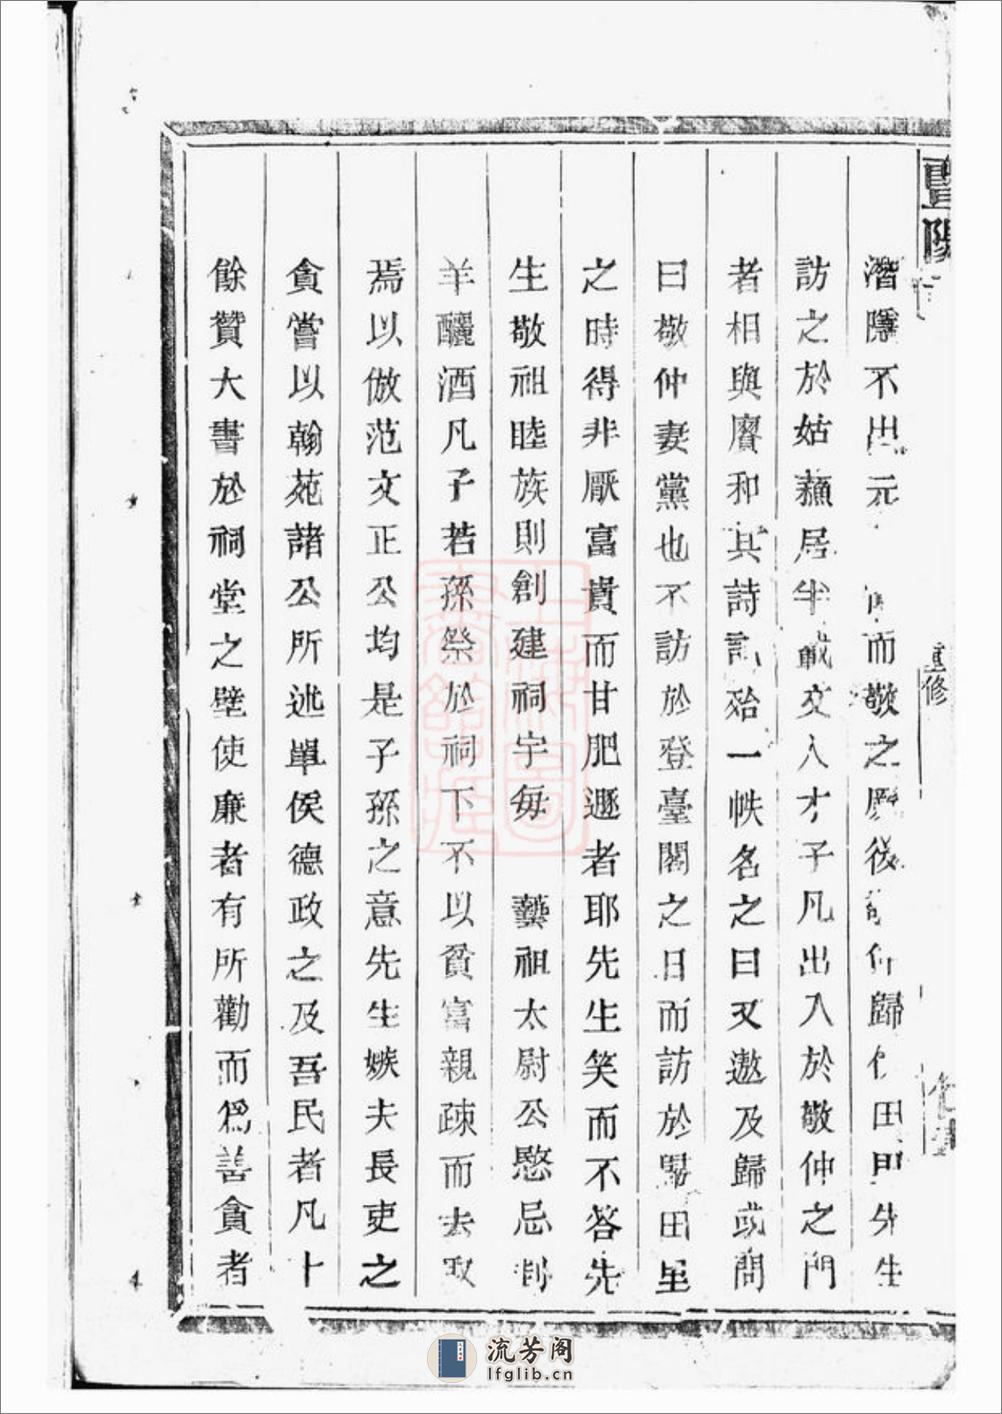 暨陽
重修
潛隱不出元 而敬之 後 仲歸 田 先生
訪之於姑蘇居半載文人才子凡出入於敬仲之門
者相與賡和其詩 殆一帙名之曰又遨及歸或問
曰敬仲妻黨也不訪於登臺閣之日而訪於歸田里
之時得非厭富貴而甘肥遯者耶先生笑而不答先
生敬祖睦族則創建祠宇每 藝祖太尉公愍忌
羊釃酒凡子若孫祭於祠下不以貧富親疎而去取
焉以倣范文正公均是子孫之意先生嫉夫長吏之
貪嘗以翰苑諸公所述單侯德政之及吾民者凡十
餘贊大書於祠堂之壁使廉者有所勸而爲善貪者
上海圖書館藏
流芳阁
lfglib.cn